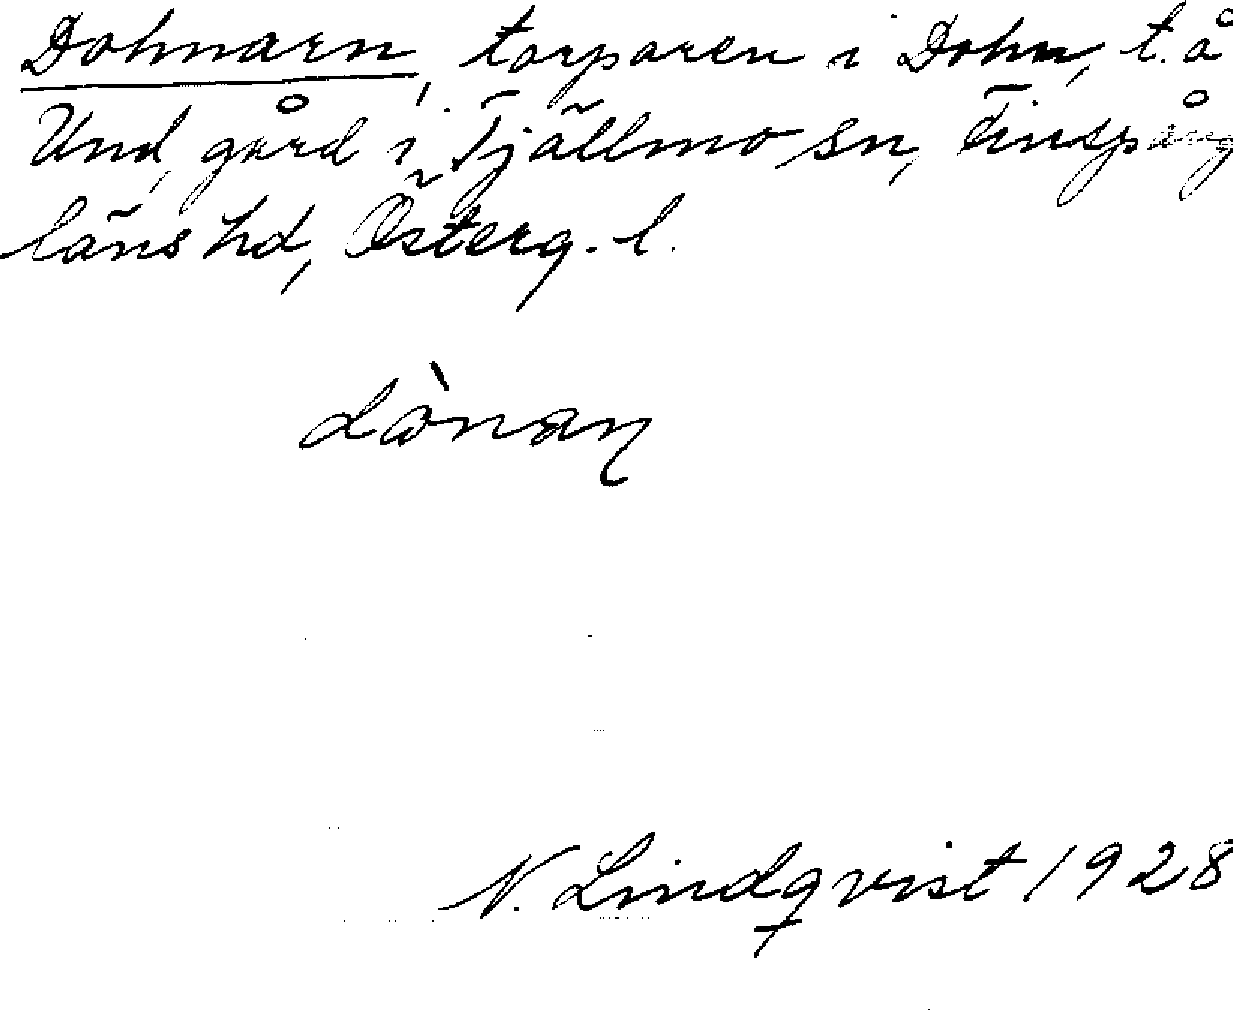 Dohnarn, torparen i Dohn, t. å
Und, gård i Tjällmo sn, Finspång
läns hd, Österg. l.
N. Lindqvist 1928